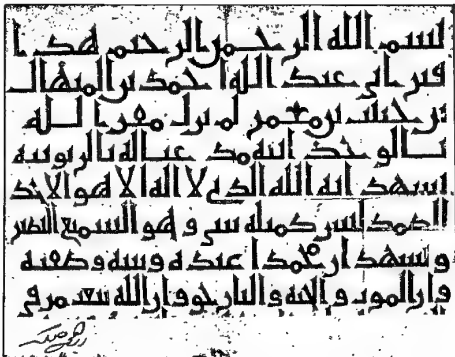 بسم الله الرحمن الرحيم هذا
قبر ابي عبد الله احمد بن المنهال
بن حبيب بن معمر لم يزل مقرا لله
بالوحدانية مذ عناله بالربوبية
يشهد انه الله الذي لا اله الا هو الاحد
الصمد ليس كمثله شي و هو السميع البصير
و يشهد ان محمدا عبده و نبيه و صفيه
و ان الموت و الجنة و النار حق و ان الله يبعث من في